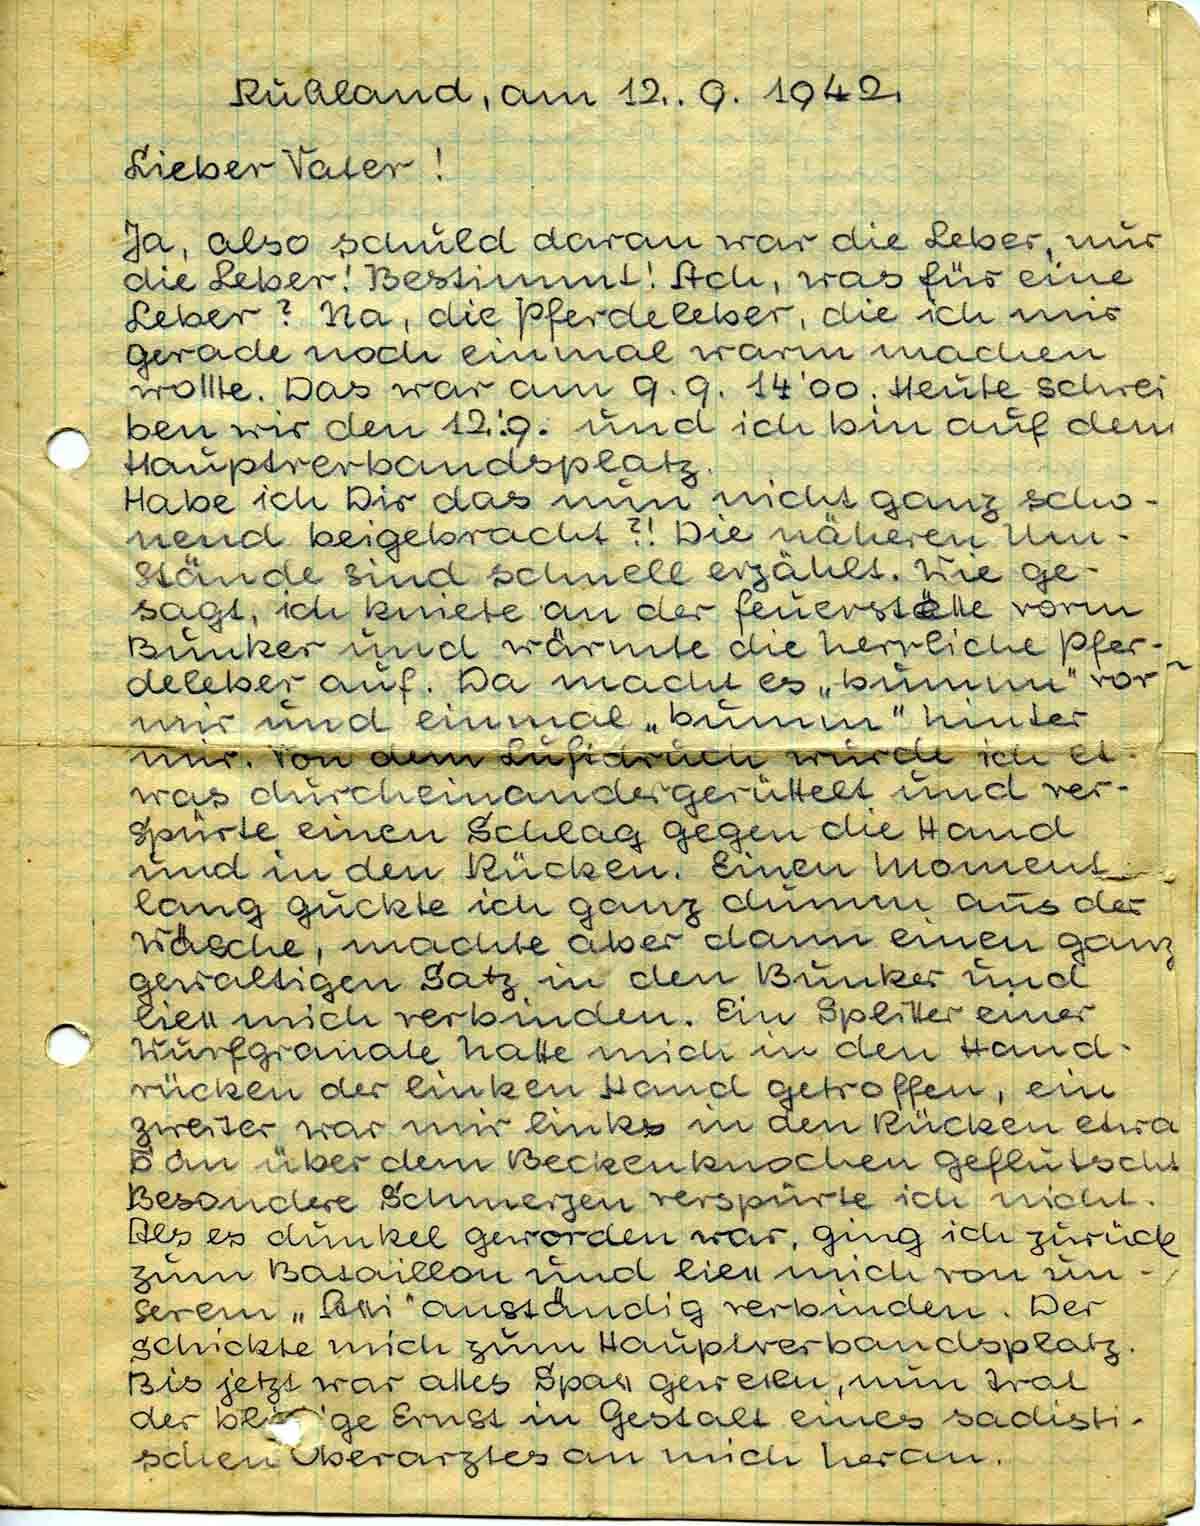 Rußland, am 12. 9. 1942.
Lieber Vater!
Ja, also schuld daran war die Leber, nur
die Leber! Bestimmt! Ach, was für eine
Leber? Na, die Pferdeleber, die ich mir
gerade noch einmal warm machen
wollte. Das war am 9. 9. 14'00. Heute schrei
ben wir den 12.9. und ich bin auf dem
Hauptverbandsplatz.
Habe ich Dir das nun nicht ganz scho-
nend beigebracht?! Die näheren Um-
stände sind schnell erzählt. Wie ge-
sagt, ich kniete an der Feuerstelle vorm
Bunker und wärmte die herrliche Pfer-
deleber auf. Da macht es „bumm" vor
mir und einmal „bumm" hinter
mir. Von dem Luftdruck wurde ich et-
was durcheinandergerüttelt und ver-
spürte einen Schlag gegen die Hand
und in den Rücken. Einen Moment
lang guckte ich ganz dumm aus der
Wäsche, machte aber dann einen ganz
gewaltigen Satz in den Bunker und
ließ mich verbinden. Ein Splitter einer
Wurfgranate hatte mich in den Hand-
rücken der linken Hand getroffen, ein
zweiter war mir links in den Rücken etwa
cm über dem Beckenknochen geflutscht
Besondere Schmerzen verspürte ich nicht.
Als es dunkel geworden war, ging ich zurück
zum Bataillon und ließ mich von un-
serem „Assi" anständig verbinden. Der
schickte mich zum Hauptverbandsplatz.
Bis jetzt war alles Spaß gewesen, nun trat
der bl ge Ernst in Gestalt eines sadisti-
schen Oberarztes an mich heran.